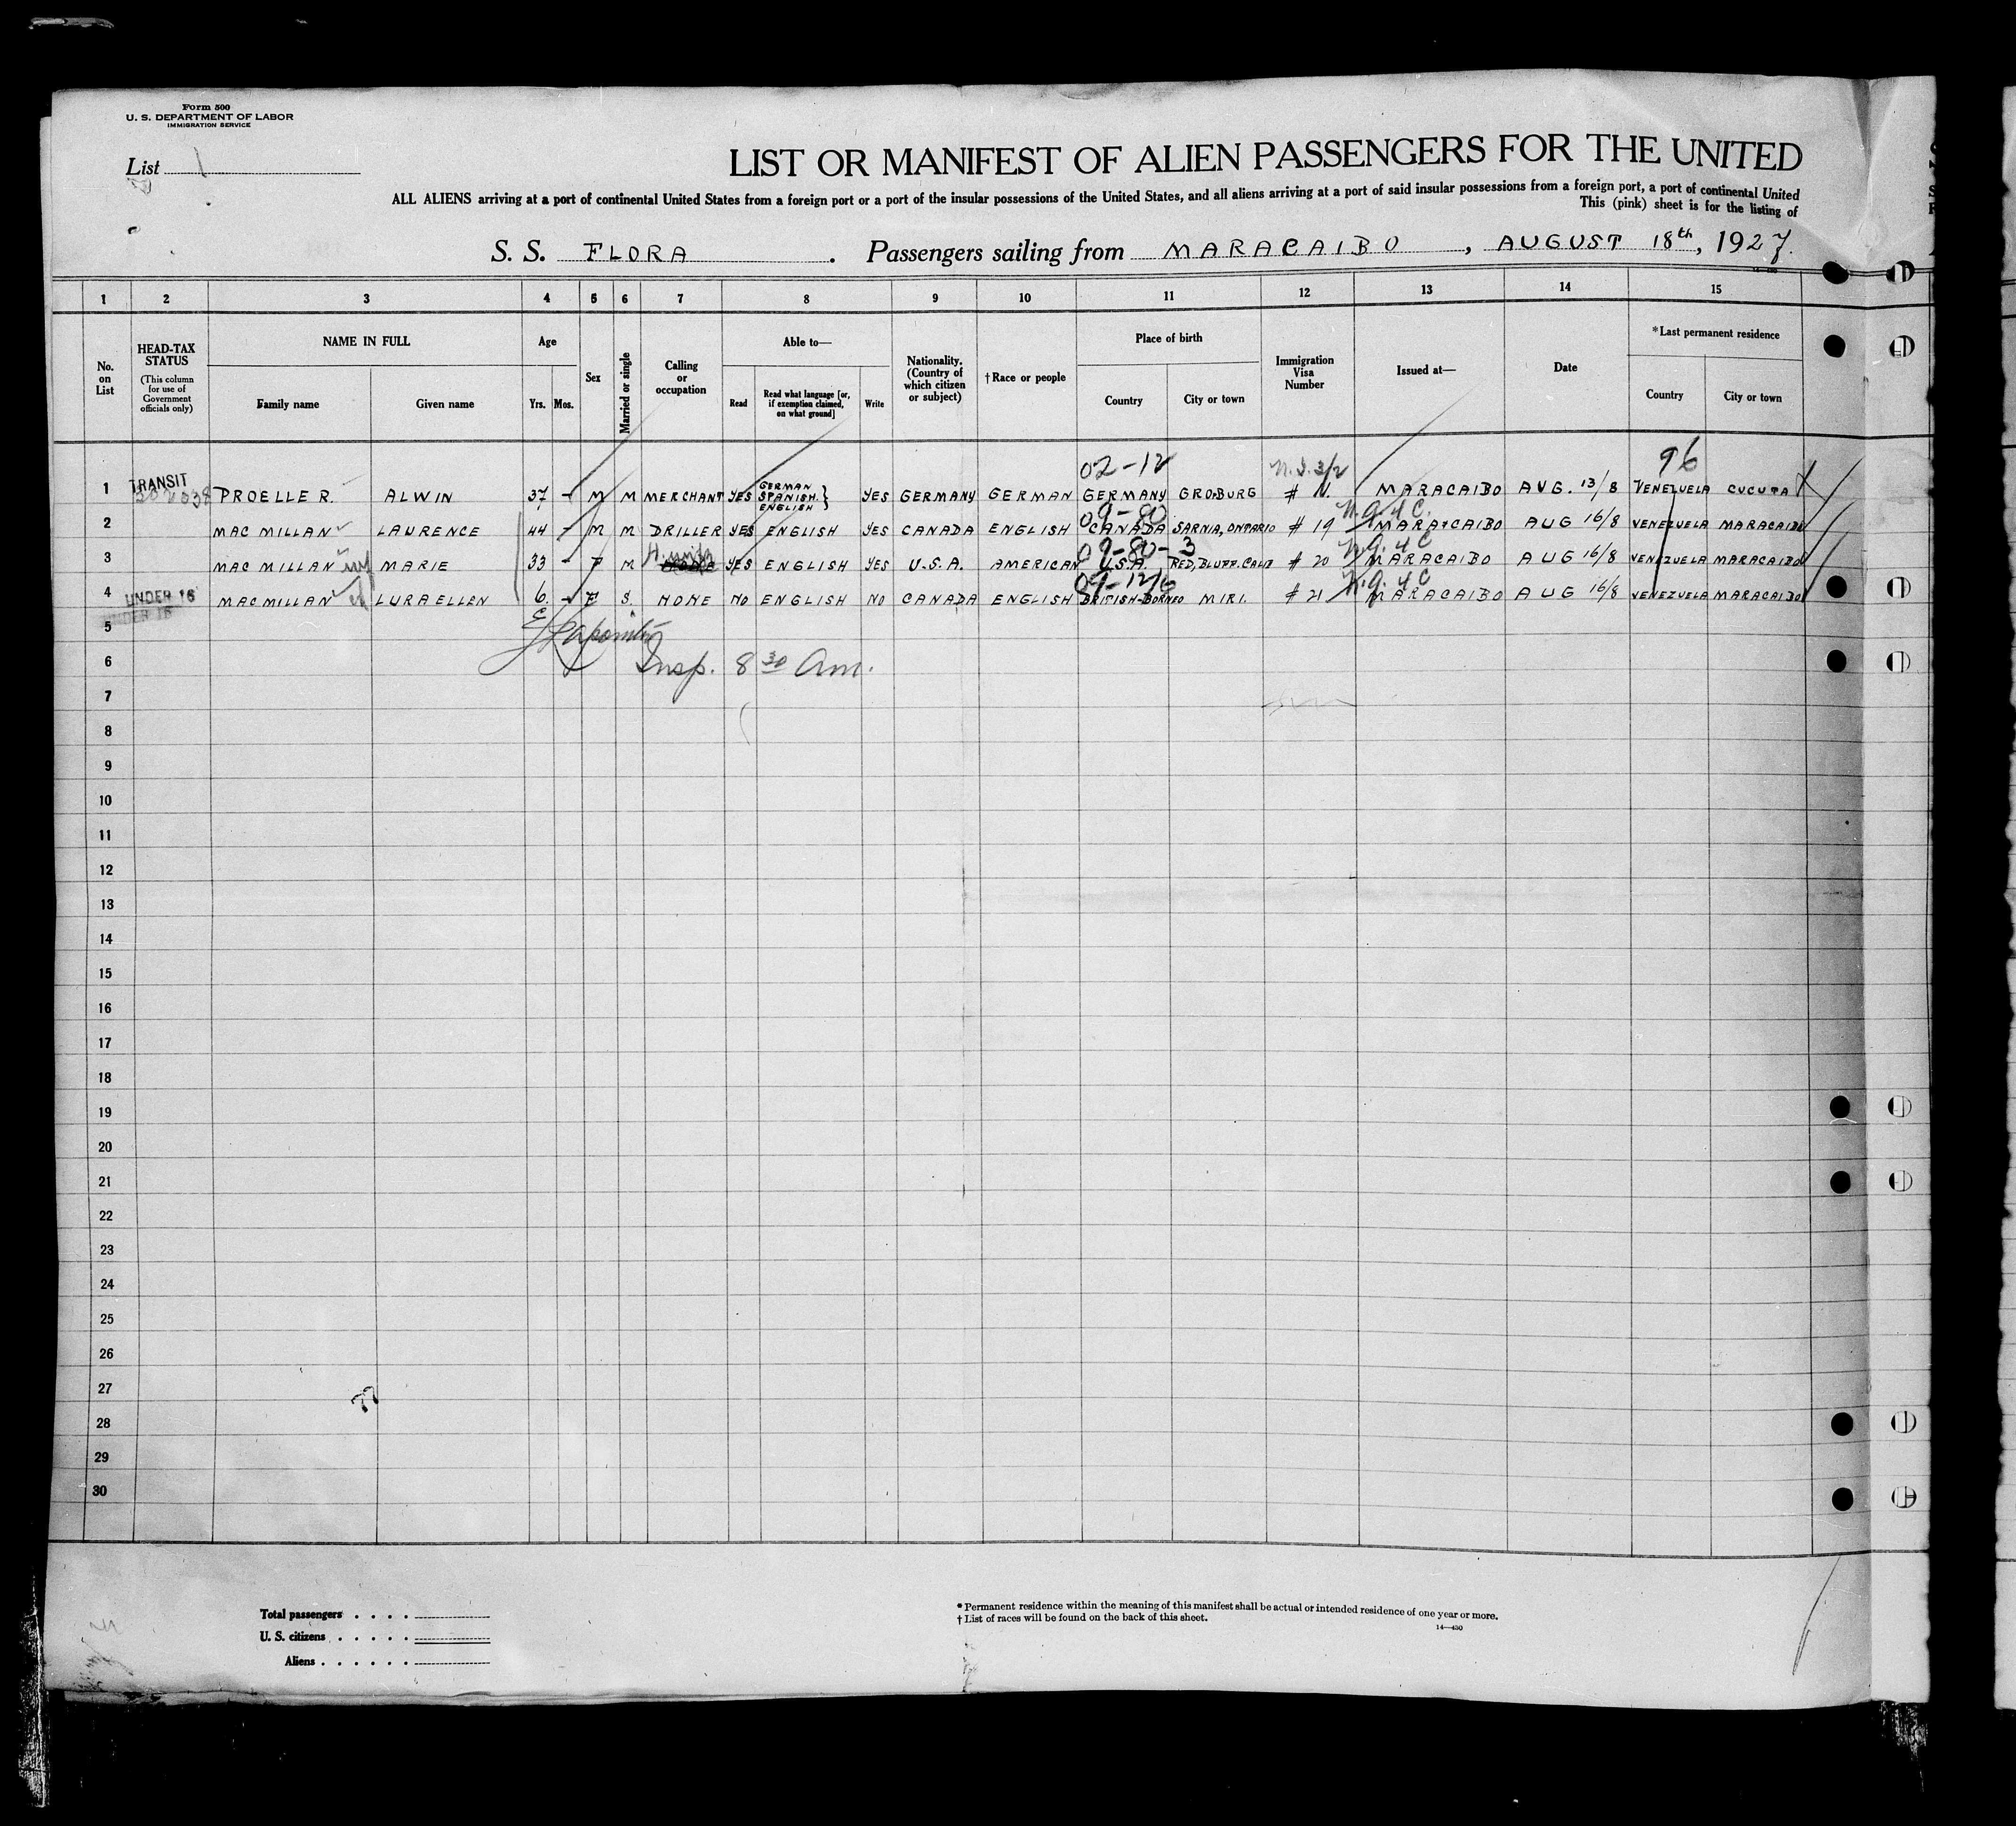 Form 500
U. S. DEPARTMENT OF LABOR
IMMIGRATION SERVICE
List 1
LIST OR MANIFEST OF ALIEN PASSENGERS FOR THE UNITED
ALL ALIENS arriving at a port of continental United States from a foreign port or a port of the insular possessions of the United States, and all aliens arriving at a port of said insular possessions from a foreign port, a port of continental United
This (pink) sheet is for the listing of
S. S. FLORA. Passengers sailing from MARACAIBO, AUGUST 18th, 1927.
1 2 3 4 5 6 7 8 9 10 11 12 13 14 15
No. on List
HEAD-TAX STATUS (This column for use of Government officials only)
NAME IN FULL Family name Given name
Age Yrs. Mos.
Sex
Married or single
Calling or occupation
Able to— Read Read what language [or, if exemption claimed, on what ground] Write
Nationality. (Country of which citizen or subject)
†Race or people
Place of birth Country City or town
Immigration Visa Number
Issued at—
Date
*Last permanent residence Country City or town
02-12 N.I. 3/2 96
1 TRANSIT PROELLE R. ALWIN 37 - M M MERCHANT YES GERMAN SPANISH ENGLISH } YES GERMANY GERMAN GERMANY GROBURG # N. MARACAIBO AUG. 13/8 VENEZUELA CUCUTA
09-80 N.Q. 4C.
2 MAC MILLAN LAURENCE 44 - M M DRILLER YES ENGLISH YES CANADA ENGLISH CANADA SARNIA, ONTARIO # 19 MARACAIBO AUG 16/8 VENEZUELA MARACAIBO
09-80-3 N.Q. 4C
3 MAC MILLAN MARIE 33 - F M YES ENGLISH YES U.S.A. AMERICAN U.S.A. RED, BLUFF. CALIF # 20 MARACAIBO AUG 16/8 VENEZUELA MARACAIBO
N.Q. 4C
4 UNDER 16 MACMILLAN LURAELLEN 6. - F S. NONE NO ENGLISH NO CANADA ENGLISH BRITISH-BORNEO MIRI. # 21 MARACAIBO AUG 16/8 VENEZUELA MARACAIBO
UNDER 16
5
6 Insp. 8 30 Am.
7
8
9
10
11
12
13
14
15
16
17
18
19
20
21
22
23
24
25
26
27
28
29
30
Total passengers . . . .
U. S. citizens . . . . .
Aliens . . . . . .
* Permanent residence within the meaning of this manifest shall be actual or intended residence of one year or more.
† List of races will be found on the back of this sheet.
14—430